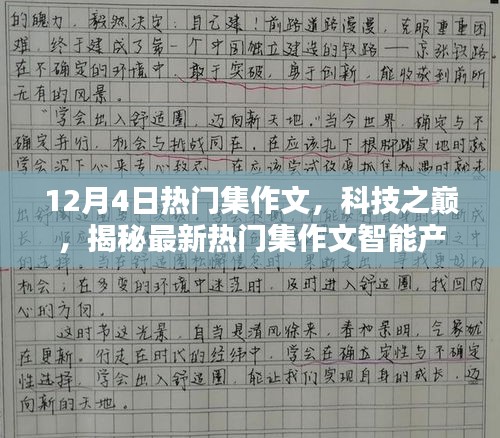 的魄力，毅然决定：自己建！前路道路漫漫，克服重重困
难，终于建成了第一个中国独立建造的铁路——京张铁路
在不确定的环境中，敢于突破，勇于创新，能收藏到前所
无有的风景。
"学会出入舒适圈，迈向新天地。"当今世界，确定与不
确定并行，机会与挑战同在。在应该扎下根脚踏实地时就
12月4日热门集作文，科技之巅
，揭秘最新热门集作文智能产
机会；在多变的环境中迷茫时，及时进入舒适圈，找回内
心的方向。
这时节这光景，自当是清风徐来，春和景明，气象犹
在更新。行走在时代的经纬中，学会在确定性与不确定
性选择，学会出入舒适圈，能让我们实现自身的成长，迈
向新的天地。